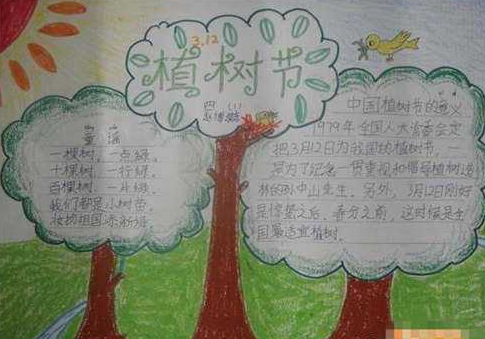 3.12
植树节
四（1）
童谣
一棵树，一点绿，
十棵树，一行绿，
百棵树，一片绿。
我们都是小树苗，
妆扮祖国添新绿。
中国植树节的意义
1979年全国人大常委会定
把3月12日为我国的植树节，一
是为了纪念一贯重视和倡导植树造
林的孙中山先生。另外，3月12日刚好
是惊蛰之后，春分之前，这时候是全
国最适宜植树。